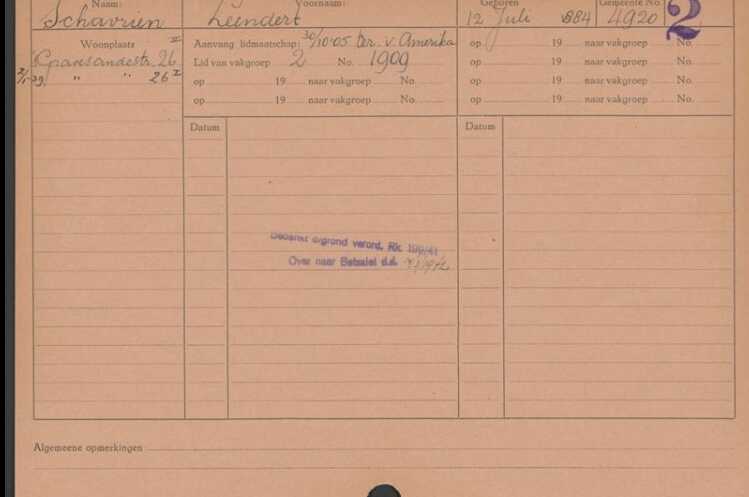 Naam: Voornaam: Geboren Gemeente No.
Schavrien Leendert 12 Juli 884 4920 2
Woonplaats II Aanvang lidmaatschap: 30/10-05 ter. v. Amerika op 19 naar vakgroep No.
Gravesandestr. 26 Lid van vakgroep 2 No. 1909 op 19 naar vakgroep No.
2/1-39. " " 26 I op 19 naar vakgroep No. op 19 naar vakgroep No.
op 19 naar vakgroep No. op 19 naar vakgroep No.
Datum Datum
opgrond verord. Rk. 199/41
Over naar Betsalel d.d.
Algemeene opmerkingen